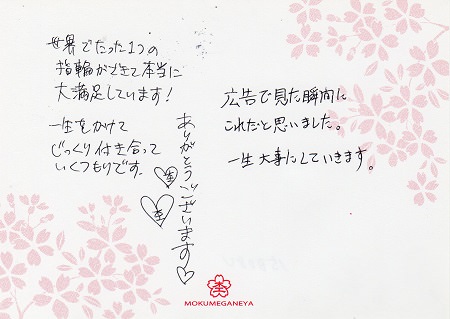 世界でたった1つの
指輪ができて本当に
大満足しています！
一生をかけて
じっくり付き合って
いくつもりです。
ありがとうございます♡
広告で見た瞬間に
これだと思いました。
一生大事にしていきます。
MOKUMEGANEYA